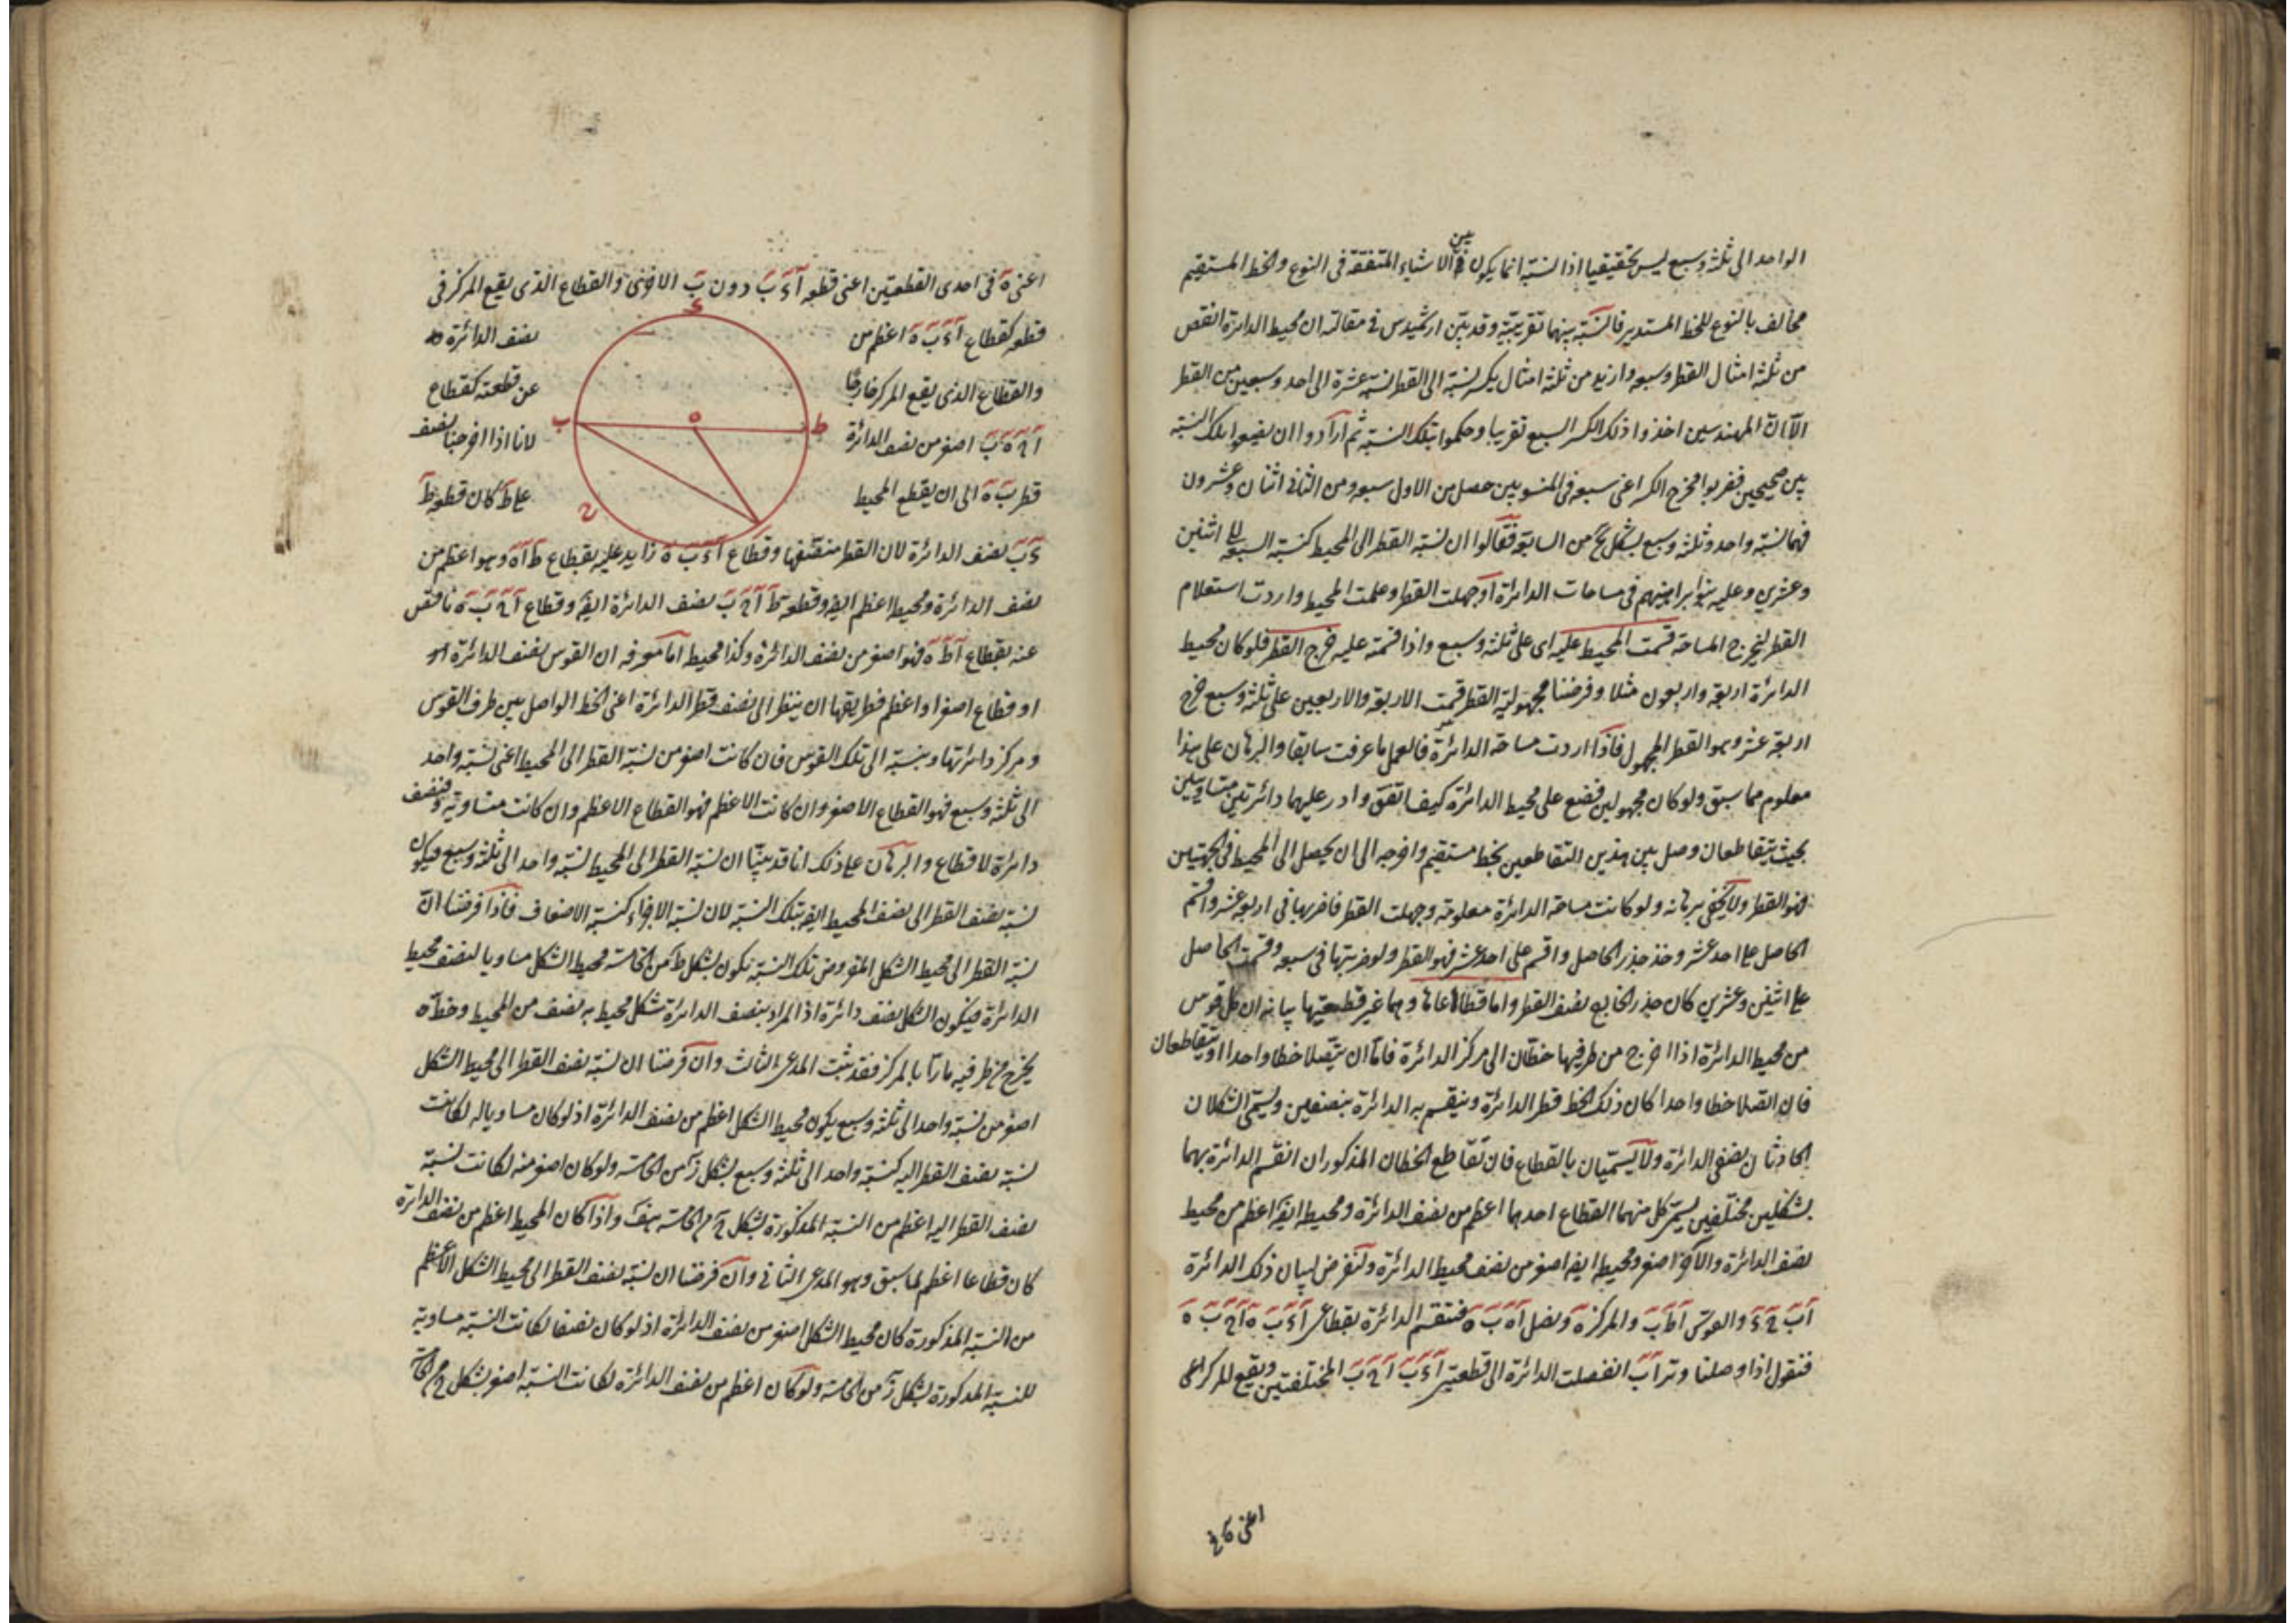 الواحد الى ثلثة وسبع ليس تحقيقيا اذ النسبة انما يكون بين الاشياء المتفقة فى النوع والخط المستقيم
مخالف بالنوع للخط المستدير فالنسبة بينهما تقريبية وقد بين ارشميدس فى مقالته ان محيط الدائرة انقص
من ثلثة امثال القطر وسبعه وازيد من ثلثة امثال بكسر نسبة الى القطر نسبة عشرة الى احد وسبعين من القطر
الا ان المهندسين اخذوا ذلك الكسر السبع تقريبا وحكموا بتلك النسبة ثم ارادوا ان يضعوا تلك النسبة
بين صحيحين فضربوا مخرج الكسر اعنى سبعه فى المنسوبين حصل من الاول سبعه ومن الثانى اثنان وعشرون
فهما نسبة واحد وثلثة وسبع بشكل من السابعة فقالوا ان نسبة القطر الى المحيط كنسبة السبعة الى اثنين
وعشرين وعليه بنوا براهينهم فى مساحات الدائرة او جهلت القطر وعلمت المحيط واردت استعلام
القطر ليخرج المساحة قسمت المحيط عليه اى على ثلثة وسبع واذا قسمته عليه خرج القطر فلو كان محيط
الدائرة اربعة واربعون مثلا وفرضنا مجهولية القطر قسمت الاربعة والاربعين على ثلثة وسبع خرج
اربعة عشر وهو القطر المجهول فاذا اردت مساحة الدائرة فالعمل ما عرفت سابقا والبرهان على هذا
معلوم مما سبق ولو كان مجهولين فضع على محيط الدائرة كيف اتفق وادر عليهما دائرتين متساويتين
بحيث يتقاطعان وصل بين هذين التقاطعين بخط مستقيم واخرجه الى ان يحصل الى المحيط فى الجهتين
فهو القطر ولا يخفى برهانه ولو كانت مساحة الدائرة معلومة وجهلت القطر فاضربها فى اربعة عشر واقسم
الحاصل على احد عشر وخذ جذر الحاصل واقسم على احد عشر فهو القطر ولو ضربتها فى سبعه وقسمت الحاصل
على اثنين وعشرين كان جذر الخارج نصف القطر واما قطاعاها وهما غير قطعتيها بيانه ان كل قوس
من محيط الدائرة اذا اخرج من طرفيها خطان الى مركز الدائرة فاما ان يتصلا خطا واحدا او يتقاطعان
فان اتصلا خطا واحدا كان ذلك الخط قطر الدائرة وينقسم به الدائرة بنصفين ويسمى الشكلان
الحادثان نصفى الدائرة ولا يسميان بالقطاع فان تقاطع الخطان المذكوران انقسم الدائرة بهما
بشكلين مختلفين يسمى كل منهما القطاع احدهما اعظم من نصف الدائرة ومحيطه ايضا اعظم من محيط
نصف الدائرة والاخر اصغر ومحيطه ايضا اصغر من نصف محيط الدائرة ولنفرض لبيان ذلك الدائرة
والقوس والمركز ونصل فتقسم الدائرة بقطاعى
فنقول اذا وصلنا وتر اب انفصلت الدائرة الى قطعتى المختلفتين ويقع المركز اعنى
اعنى ه فى
اعنى ه فى احدى القطعتين اعنى قطعه دون الاخرى والقطاع الذى يقع المركز فى
قطعه كقطاع اعظم من نصف الدائرة
والقطاع الذى يقع المركز خارجا عن قطعته كقطاع
اصغر من نصف الدائرة لانا اذا اخرجنا نصف
قطر ب ه الى ان يقطع المحيط على ط كان قطعه ط
ء
ب ه ط
ح
نصف الدائرة لان القطر منصفها وقطاع زايد عليه بقطاع ط ا ه وهو اعظم من
نصف الدائرة ومحيطه اعظم ايضا وقطعه نصف الدائرة ايضا وقطاع ناقص
عنه بقطاع ا ط ه فهو اصغر من نصف الدائرة وكذا محيطه اما معرفه ان القوس نصف الدائرة
او قطاع اصغر او اعظم فطريقها ان ينظر الى نصف قطر الدائرة اعنى الخط الواصل بين طرف القوس
ومركز دائرتها وينسبه الى تلك القوس فان كانت اصغر من نسبة القطر الى المحيط اعنى نسبة واحد
الى ثلثة وسبع فهو القطاع الاصغر وان كانت الاعظم فهو القطاع الاعظم وان كانت مساوية فنصف
دائرة لا قطاع والبرهان على ذلك انا قد بينا ان نسبة القطر الى المحيط نسبة واحد الى ثلثة وسبع فيكون
نسبة نصف القطر الى نصف المحيط ايضا بتلك النسبة لان نسبة الاجزاء كنسبة الاضعاف فاذا فرضنا ان
نسبة القطر الى محيط الشكل المفروض تلك النسبة يكون بشكل ط من الخامسة محيط الشكل مساويا لنصف محيط
الدائرة فيكون الشكل نصف دائرة اذ المراد بنصف الدائرة شكل محيط به نصف من المحيط وخط
يخرج من طرفيه مارا بالمركز فقد ثبت المدعى الثالث وان فرضنا ان نسبة نصف القطر الى محيط الشكل
اصغر من نسبة واحد الى ثلثة وسبع يكون محيط الشكل اعظم من نصف الدائرة اذ لو كان مساويا له لكانت
نسبة نصف القطر اليه كنسبة واحد الى ثلثة وسبع بشكل ز من الخامسة ولو كان اصغر منه لكانت نسبة
نصف القطر اليه اعظم من النسبة المذكورة بشكل ح من الخامسة هف واذا كان المحيط اعظم من نصف الدائرة
كان قطاعا اعظم لما سبق وهو المدعى الثانى وان فرضنا ان نسبة نصف القطر الى محيط الشكل الاعظم
من النسبة المذكورة كان محيط الشكل اصغر من نصف الدائرة اذ لو كان نصفا لكانت النسبة مساوية
للنسبة المذكورة بشكل ز من الخامسة ولو كان اعظم من نصف الدائرة لكانت النسبة اصغر بشكل ح من